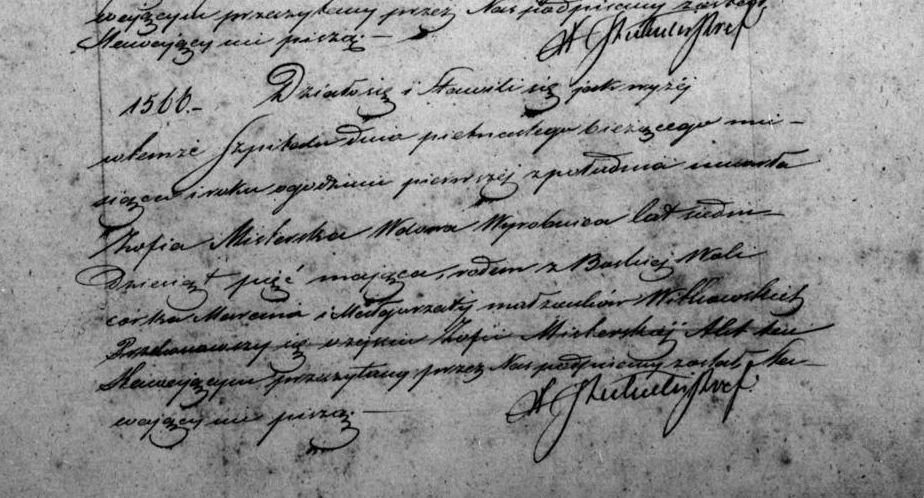 wającym przeczytany przez Nas podpisany został,
Stawający nie piszą. —
1566. — Działo się i stawili się jak wyżej
w temże Szpitalu dnia piętnastego bieżącego mie-
siąca i roku o godzinie pierwszej z południa umarła
Zofia Misterska Wdowa Wyrobnica lat siedm-
dziesiąt pięć mająca, rodem z Boskiej Woli
córka Marcina i Małgorzaty małżonków Witkowskich
Przekonawszy się o zejściu Zofii Misterskiej Akt ten
Stawającym przeczytany przez Nas podpisany został, Sta-
wający nie piszą. —